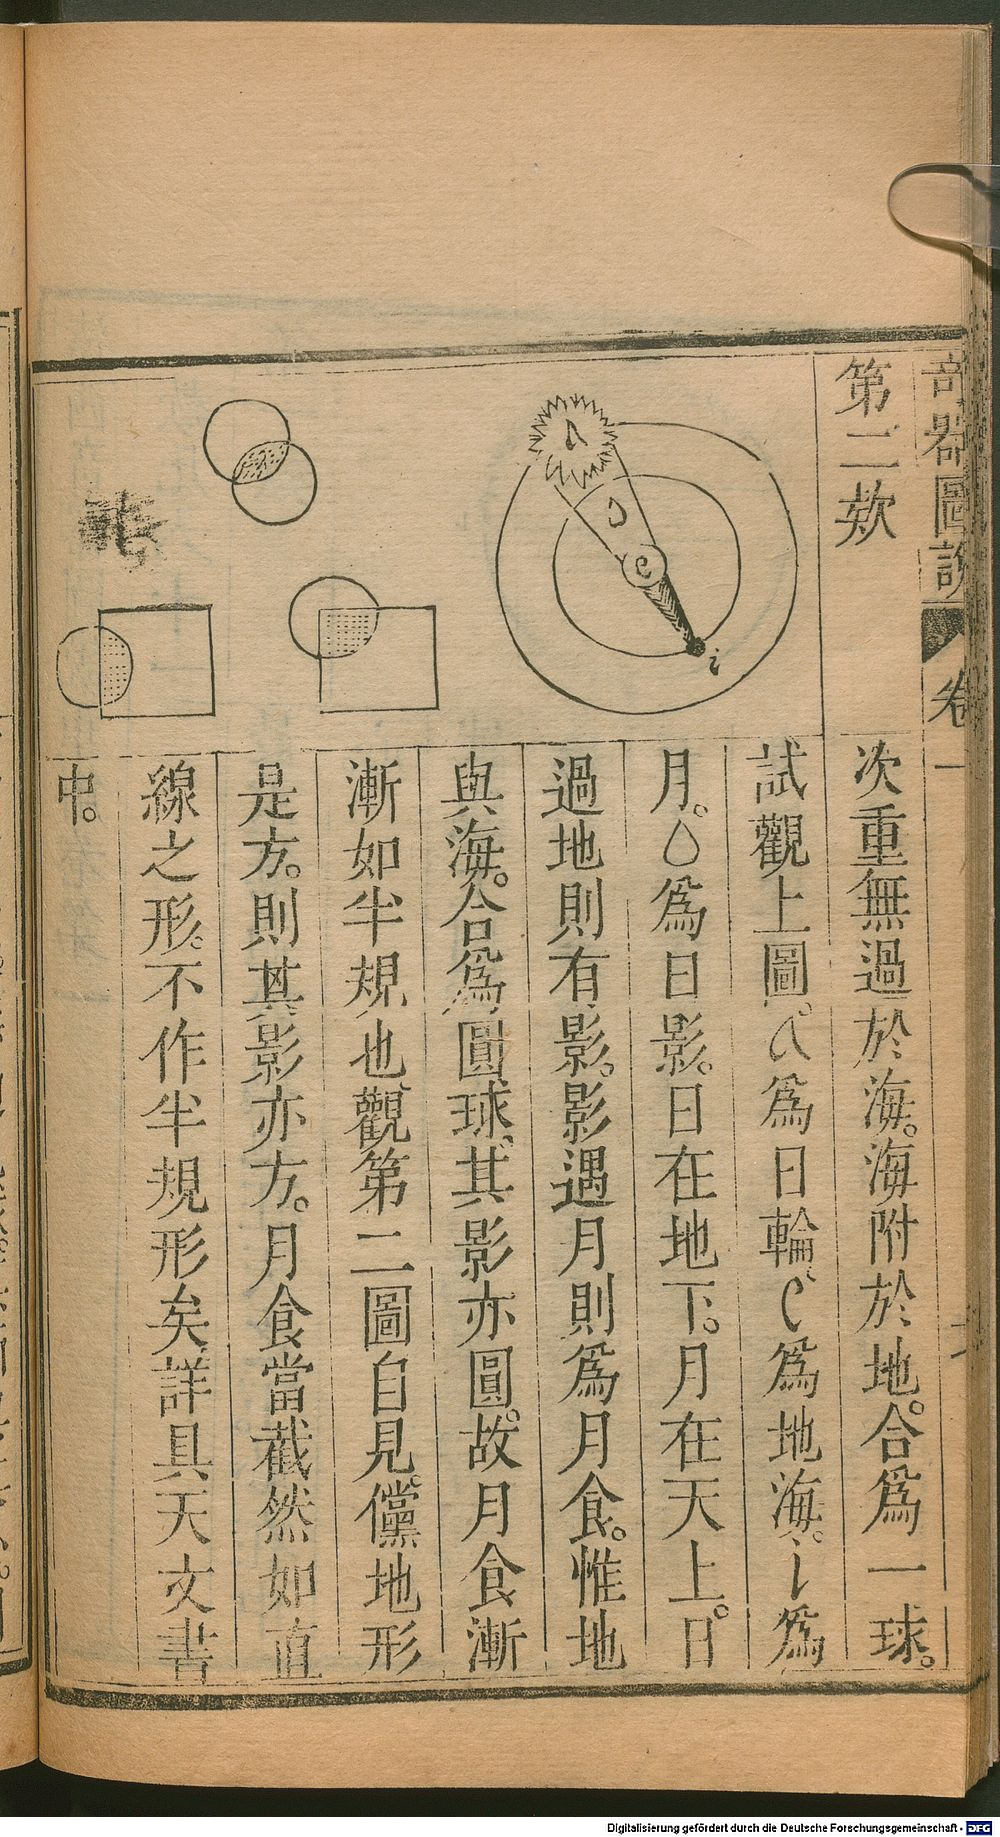 奇器圖說 卷一
第二欵
次重無過於海。海附於地。合爲一球。
試觀上圖。a爲日輪、e爲地海。i爲
月。o爲日影。日在地下。月在天上。日
過地則有影。影遇月則爲月食。惟地
與海。合爲圓球、其影亦圓。故月食漸
漸如半規也、觀第二圖自見。儻地形
是方。則其影亦方。月食當截然如直
線之形。不作半規形矣、詳具天文書
中。
a
o
e
i
Digitalisierung gefördert durch die Deutsche Forschungsgemeinschaft - DFG